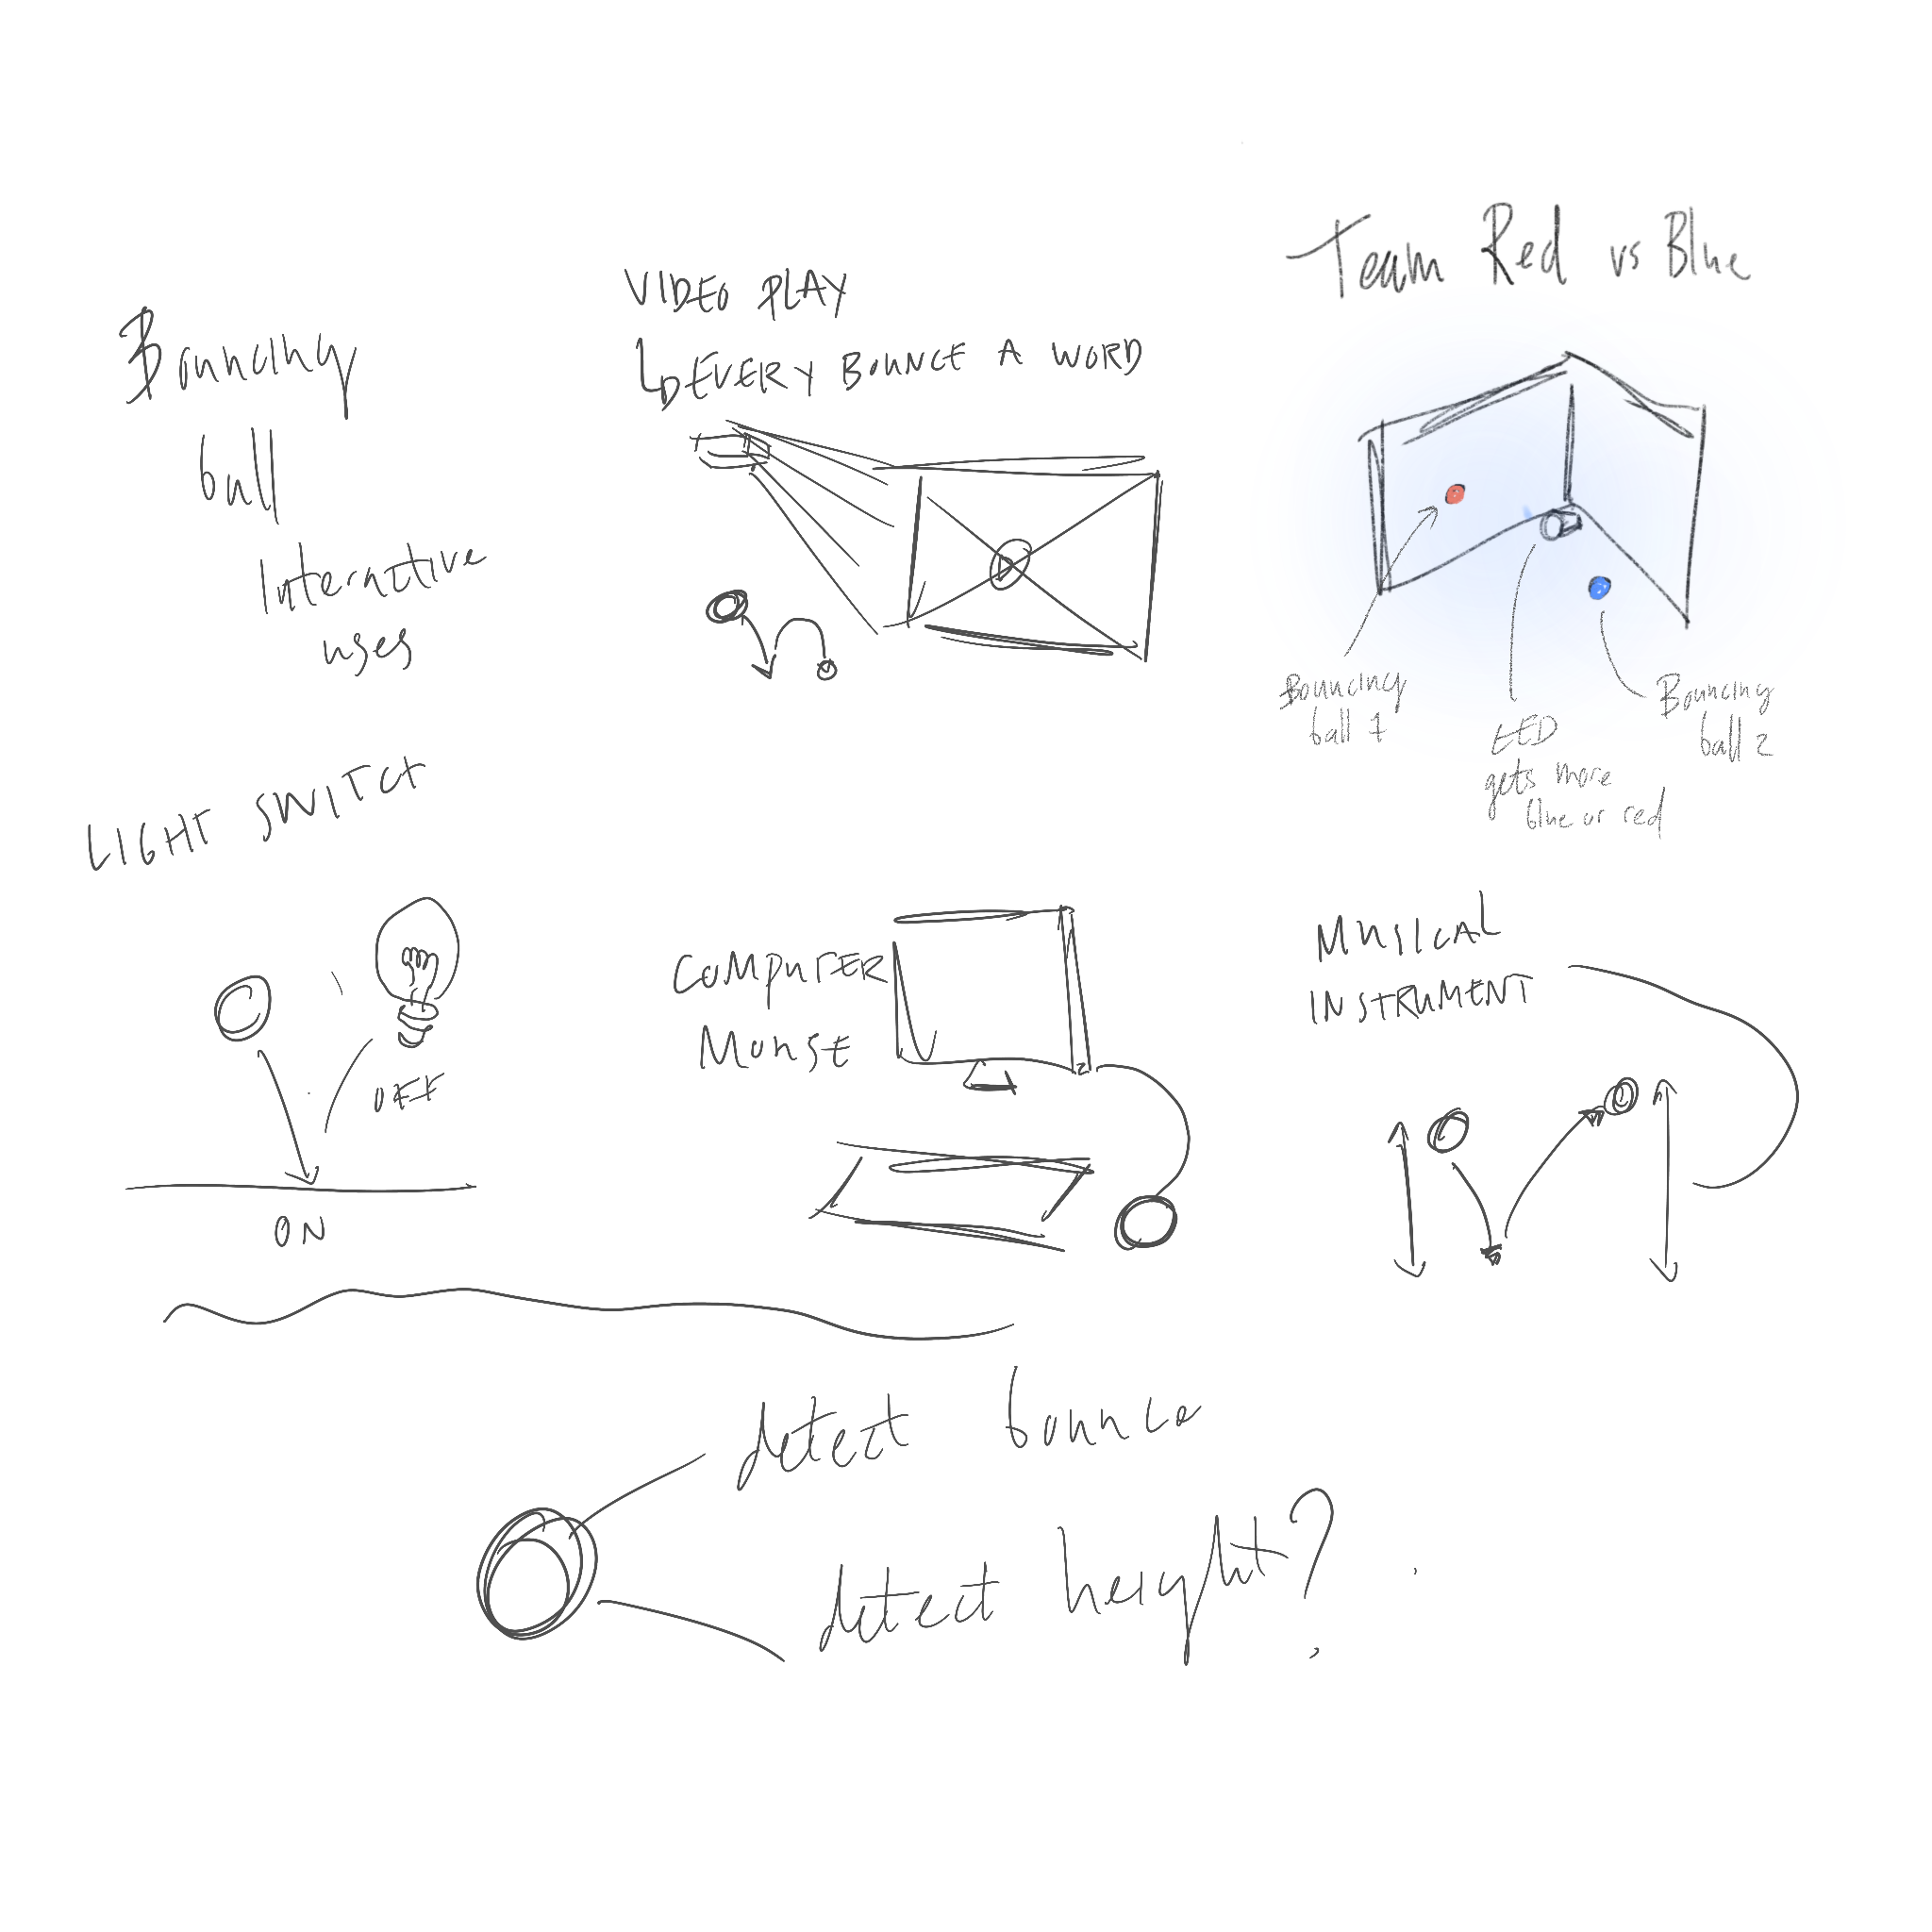 Bouncing
ball
Interactive
uses
VIDEO PLAY
EVERY BOUNCE A WORD
Team Red vs Blue
Bouncing
ball 1
LED
gets more
blue or red
Bouncing
ball 2
LIGHT SWITCH
OFF
ON
COMPUTER
MOUSE
MUSICAL
INSTRUMENT
detect bounce
detect height?